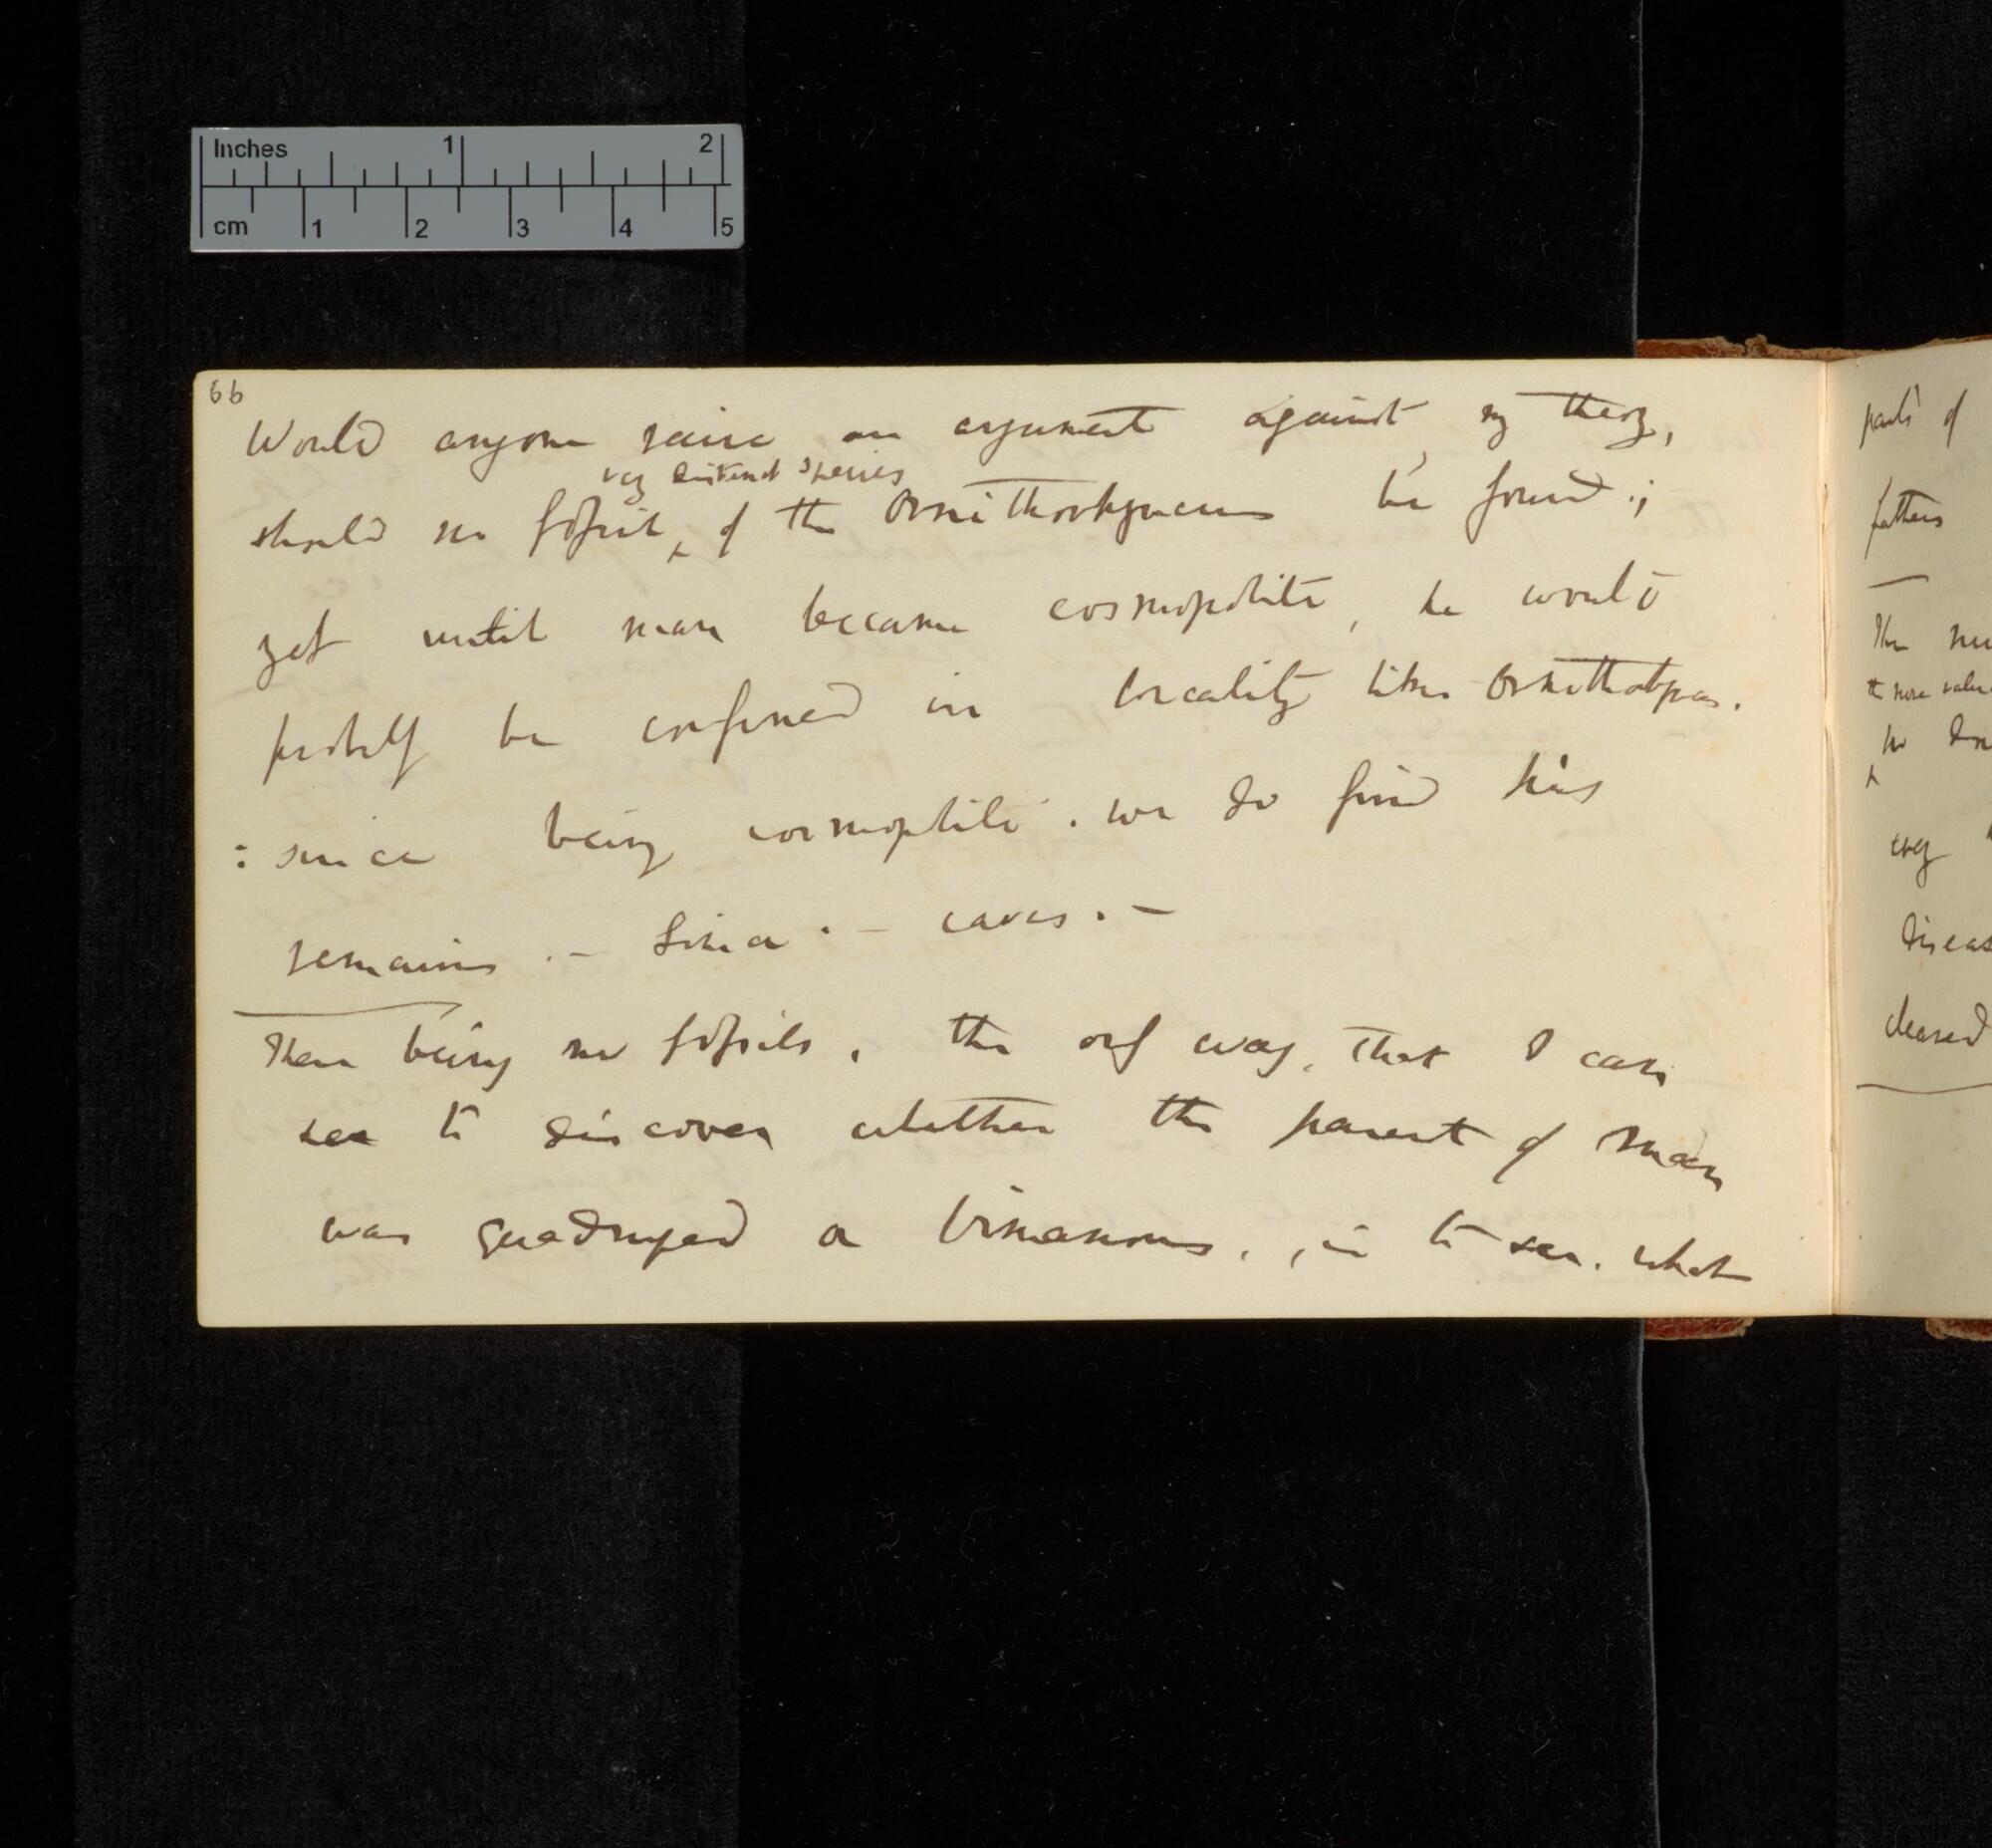 Inches 1 2
cm 1 2 3 4 5
66
Would anyone raise an argument against my theory,
very distinct species
should no fossil ^ of the Ornithorhyncus be found.;
yet until man became cosmopolite, he would
probably be confined in locality like Ornithorhyncus.
: since being cosmopolite. we do find his
remains. — Lima. — caves. —
There being no fossils, the only way, that I can
see to discover whether the parent of man
was quadruped or bimanous, , is to see. what
parts of
fathers
The
the more
no
every
cleared